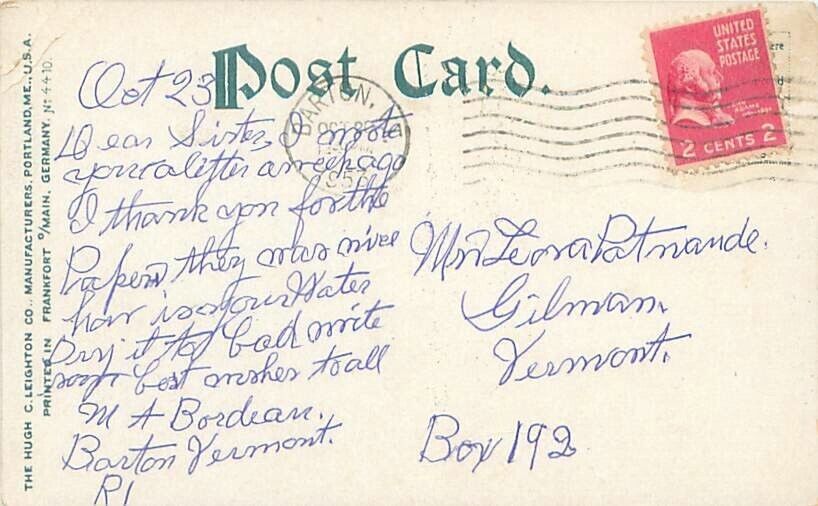 THE HUGH C. LEIGHTON CO., MANUFACTURERS, PORTLAND, ME., U.S.A.
PRINTED IN FRANKFORT O/MAIN, GERMANY. No 4410.
Post Card.
BARTON,
OCT
UNITED
STATES
POSTAGE
2 CENTS 2
Oct 23
Dear Sister, I wrote
you a letter a week ago
I thank you for the
Papers they was nice
how is your Water
Dry it to bad write
soon best wishes to all
M A Bordeau.
Barton Vermont.
R1
Mrs Leona Patnaude.
Gilman,
Vermont.
Box 192